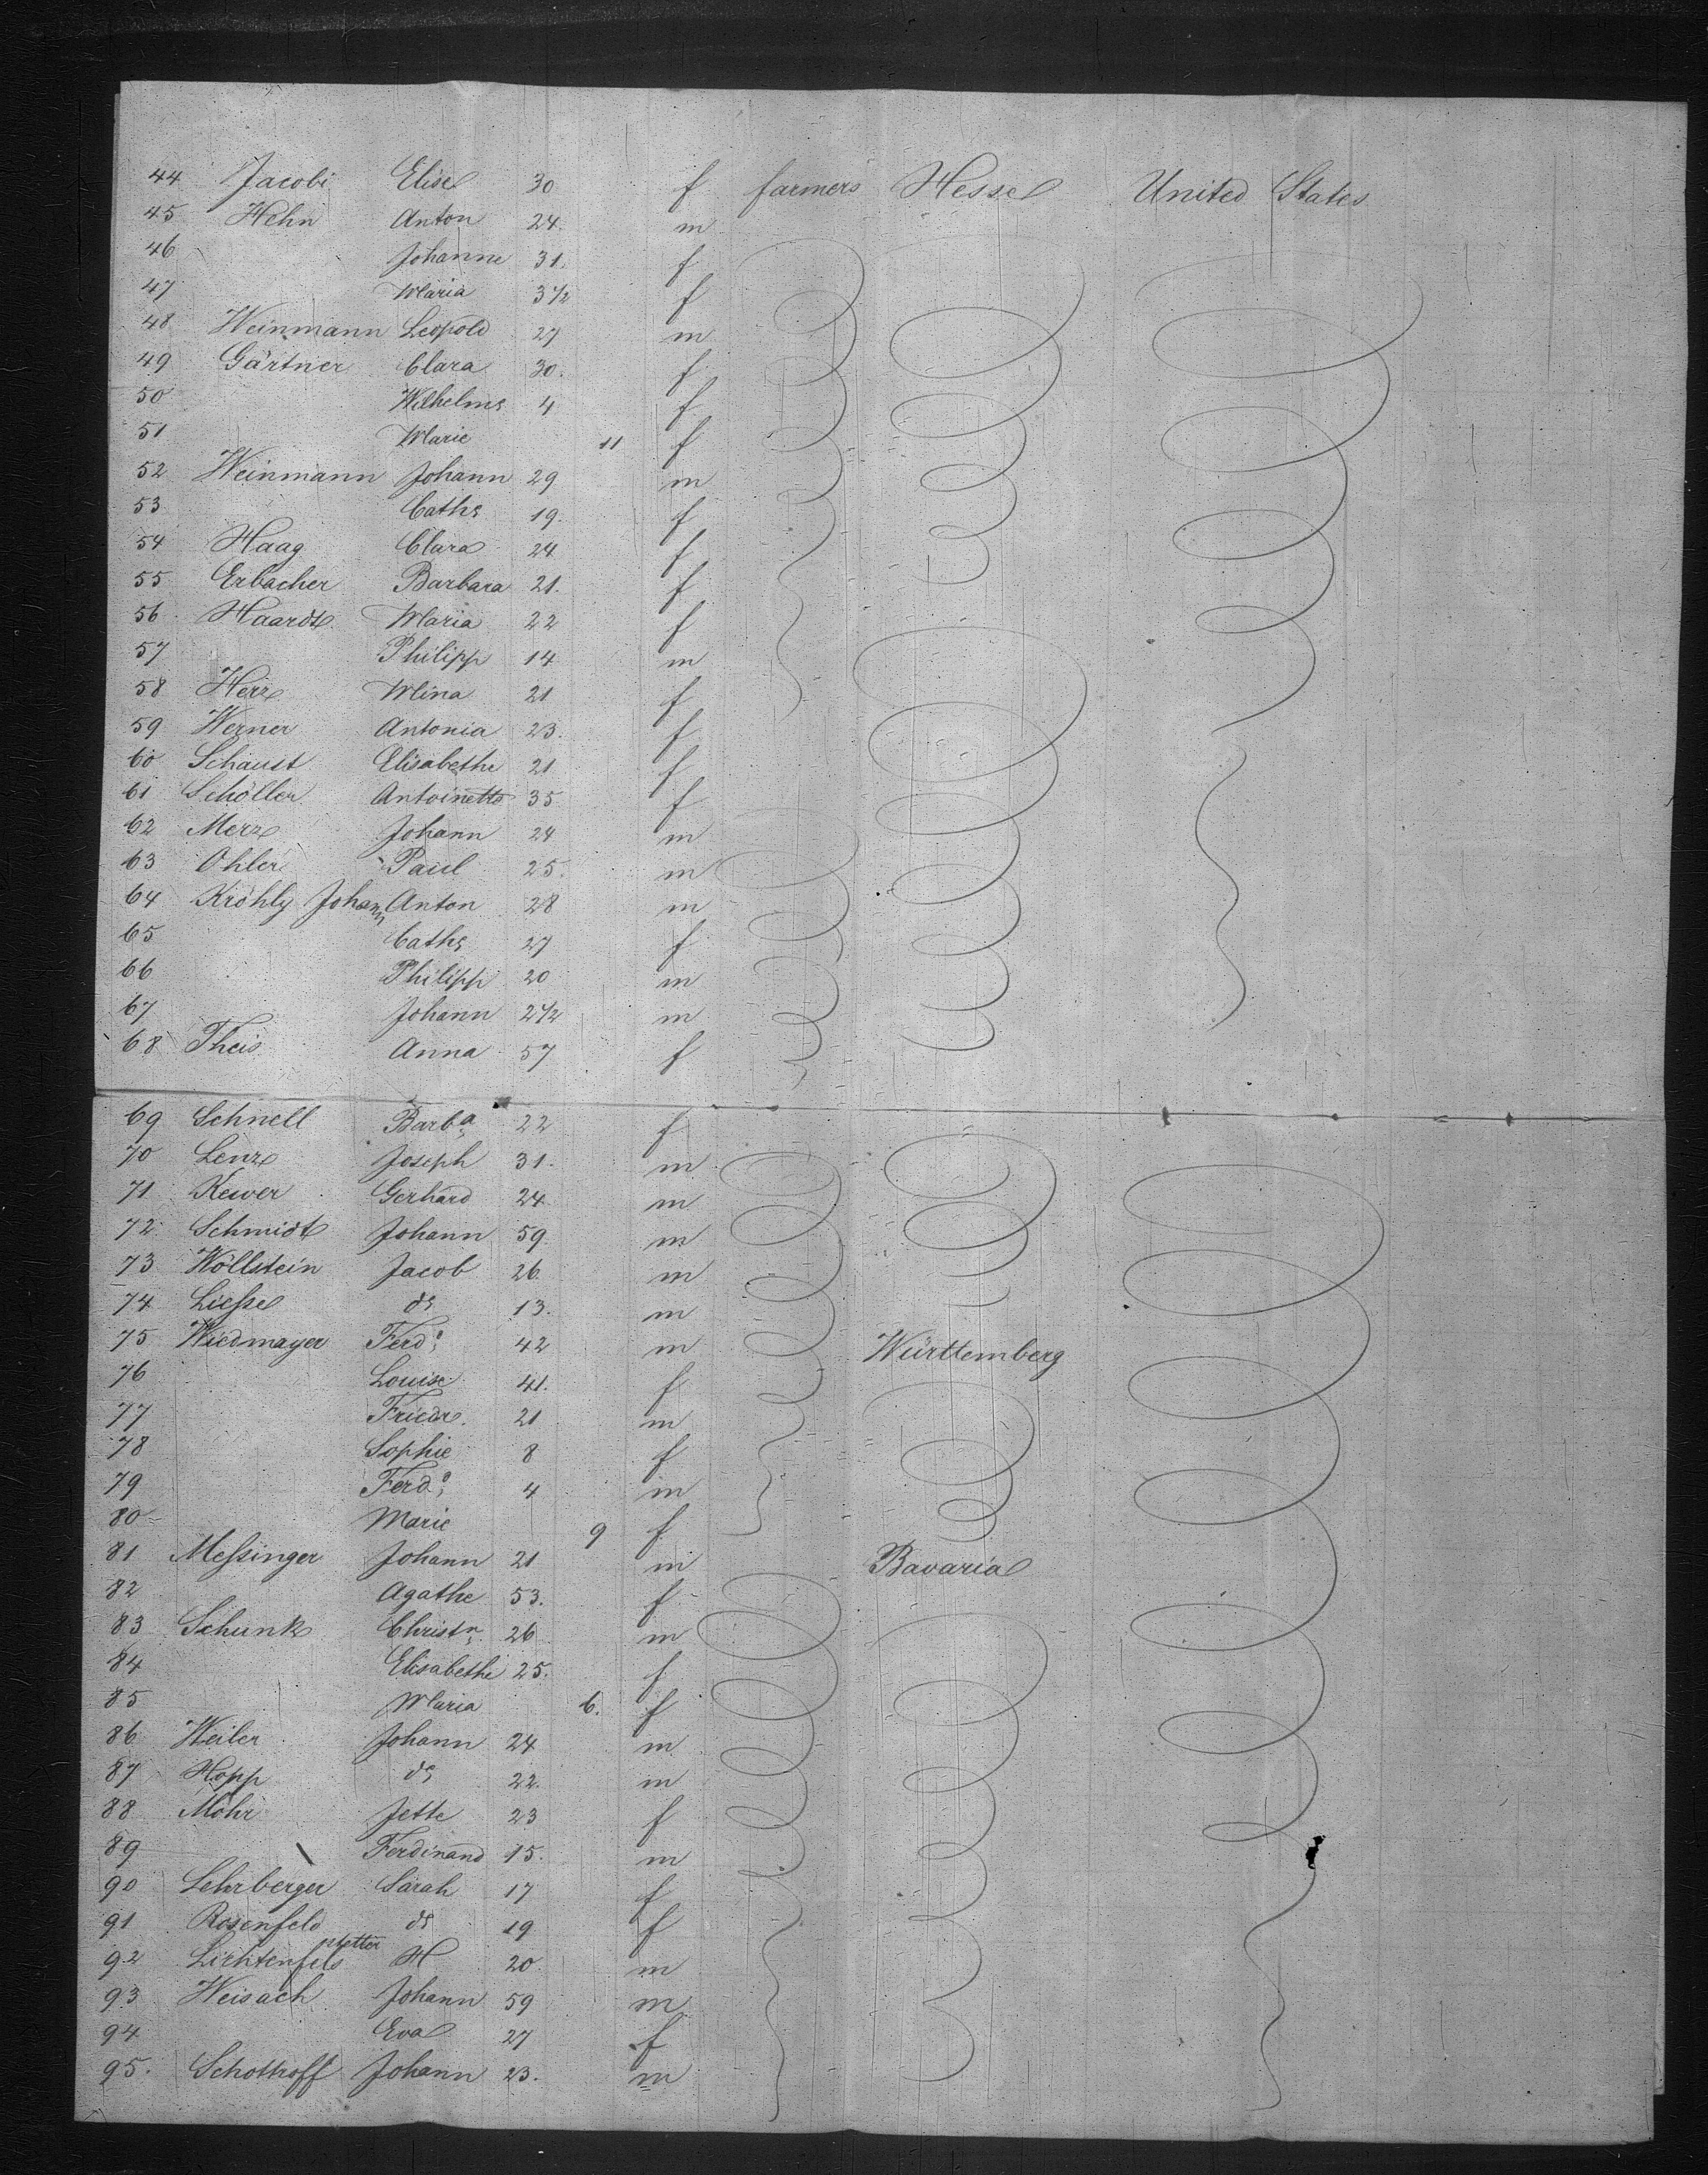 44 Jacobi Elise 30 f farmers Hesse United States
45 Hehn Anton 24. m
46 Johanne 31. f
47 Maria 3 1/2 f
48 Weinmann Leopold 27 m
49 Gärtner Clara 30. f
50 Wilhelme 4 f
51 Marie 11 f
52 Weinmann Johann 29 m
53 Cathe 19. f
54 Haag Clara 24 f
55 Erbacher Barbara 21. f
56 Haardt Maria 22 f
57 Philipp 14 m
58 Herz Mina 21 f
59 Werner Antonia 23. f
60 Schaust Elisabethe 21 f
61 Schöller Antoinette 35 f
62 Merz Johann 24 m
63 Ohler Paul 25. m
64 Kröhly Johann Anton 28 m
65 Cathe 27 f
66 Philipp 20 m
67 Johann 2 1/2 m
68 Theis Anna 57 f
69 Schnell Barba 22 f
70 Lenz Joseph 31. m
71 Kewer Gerhard 24 m
72 Schmidt Johann 59 m
73 Wöllstein Jacob 26 m
74 Ließe do 13. m
75 Wiedmayer Ferdo 42 m Württemberg
76 Louise 41. f
77 Friedr. 21 m
78 Sophie 8 f
79 Ferdo 4 m
80 Marie 9 f
81 Meßinger Johann 21 m Bavaria
82 Agathe 53. f
83 Schunk Christn 26 m
84 Elisabethe 25. f
85 Maria 6. f
86 Weiler Johann 24 m
87 Hopp do 22. m
88 Möhr Jette 23 f
89 Ferdinand 15. m
90 Lehrberger Sarah 17 f
91 Rosenfeld do 19 f
92 Lichtenfels H 20 m
93 Weisach Johann 59 m
94 Eva 27 f
95. Schothoff Johann 23. m